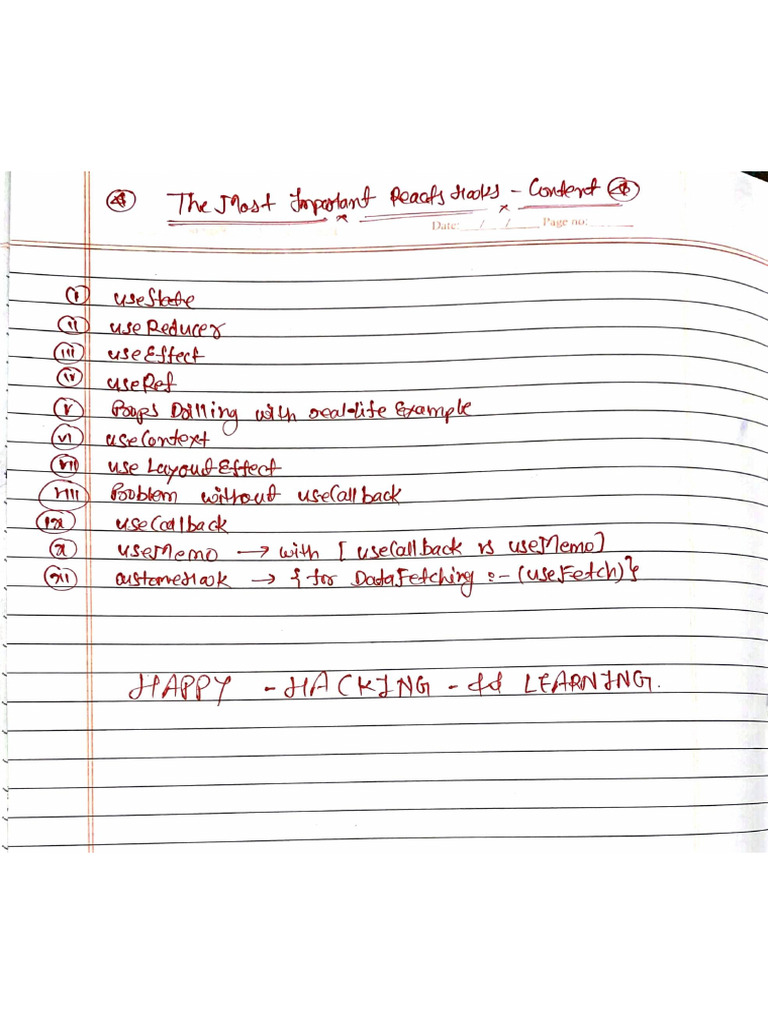 The Most Important Reacts Hooks - Content
Date: / / Page no:
i useState
ii useReducer
iii useEffect
iv useRef
v Props Drilling with real-life Example
vi useContext
vii useLayoutEffect
viii Problem without useCallback
ix useCallback
x useMemo → with [useCallback vs useMemo]
xi customeHook → { for DataFetching :- (useFetch)}
HAPPY - HACKING - && LEARNING.